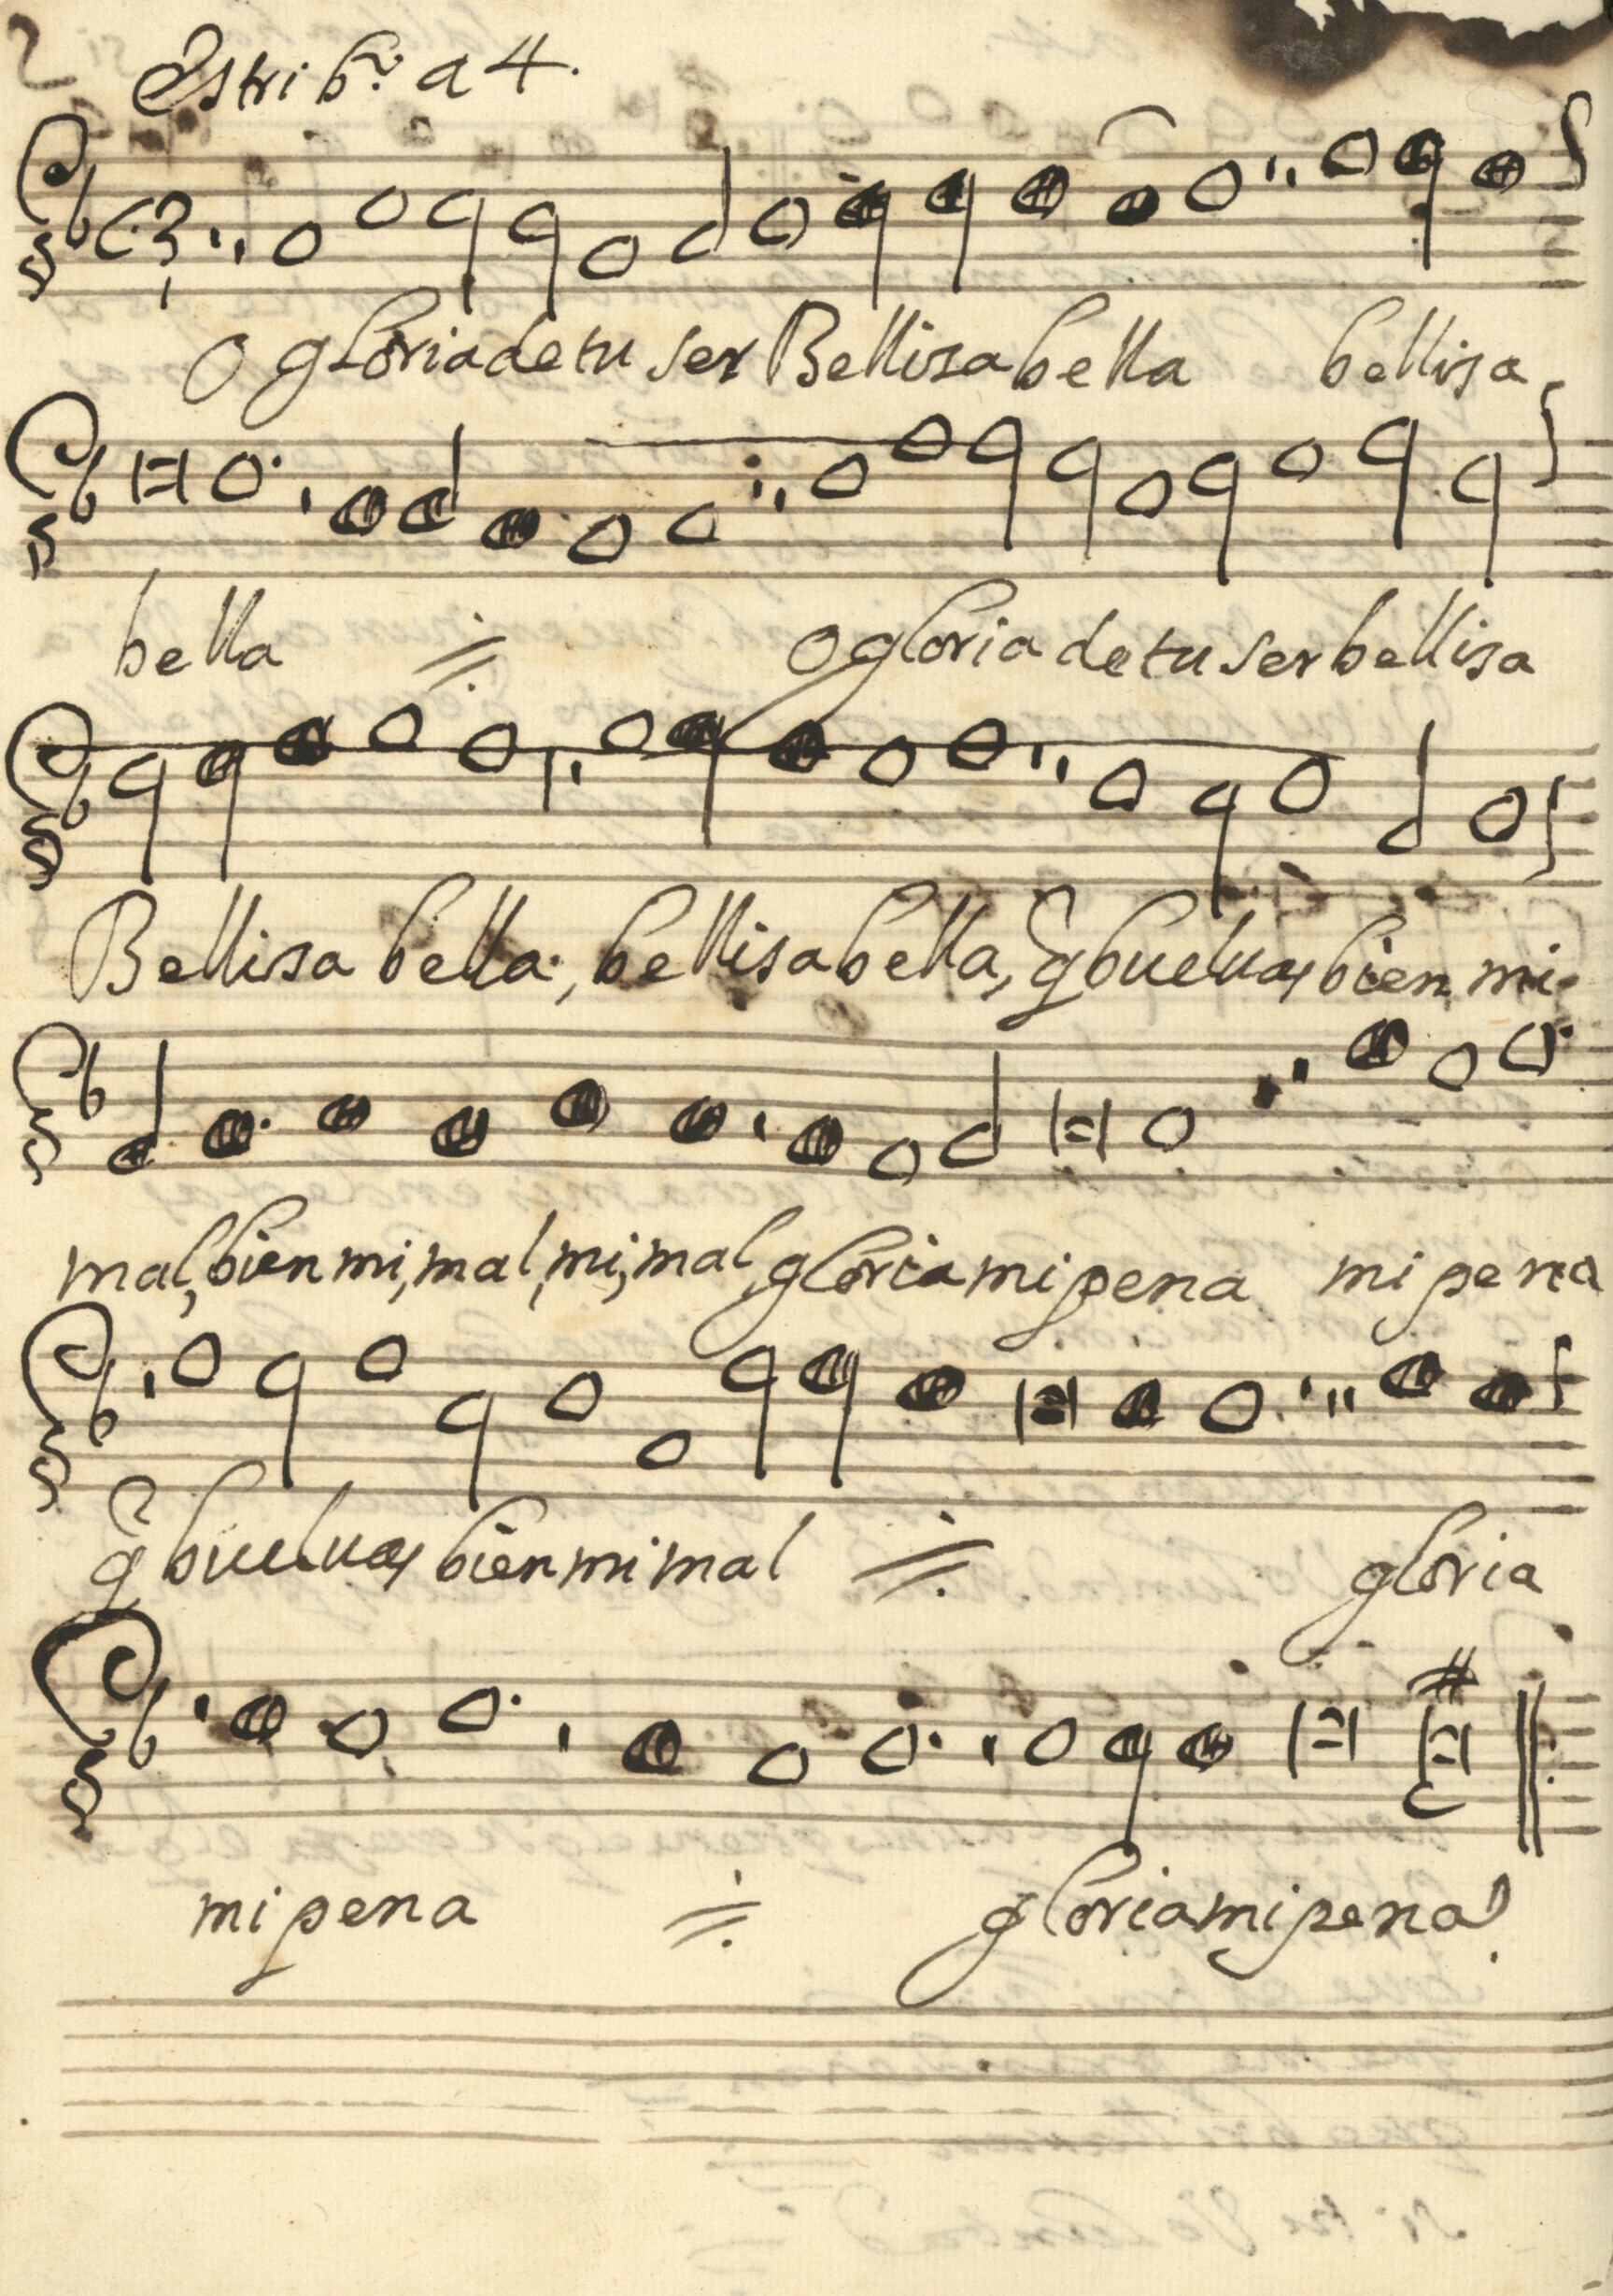 Estribo. a 4.
O gloria de tu ser Bellisa bella bellisa
bella
O gloria de tu ser bellisa
Bellisa bella, bellisa bella, q buelvas bien mi
mal, bien mi, mal, mi, mal, gloria mi pena mi pena
q buelvas bien mi mal gloria
mi pena gloria mi pena